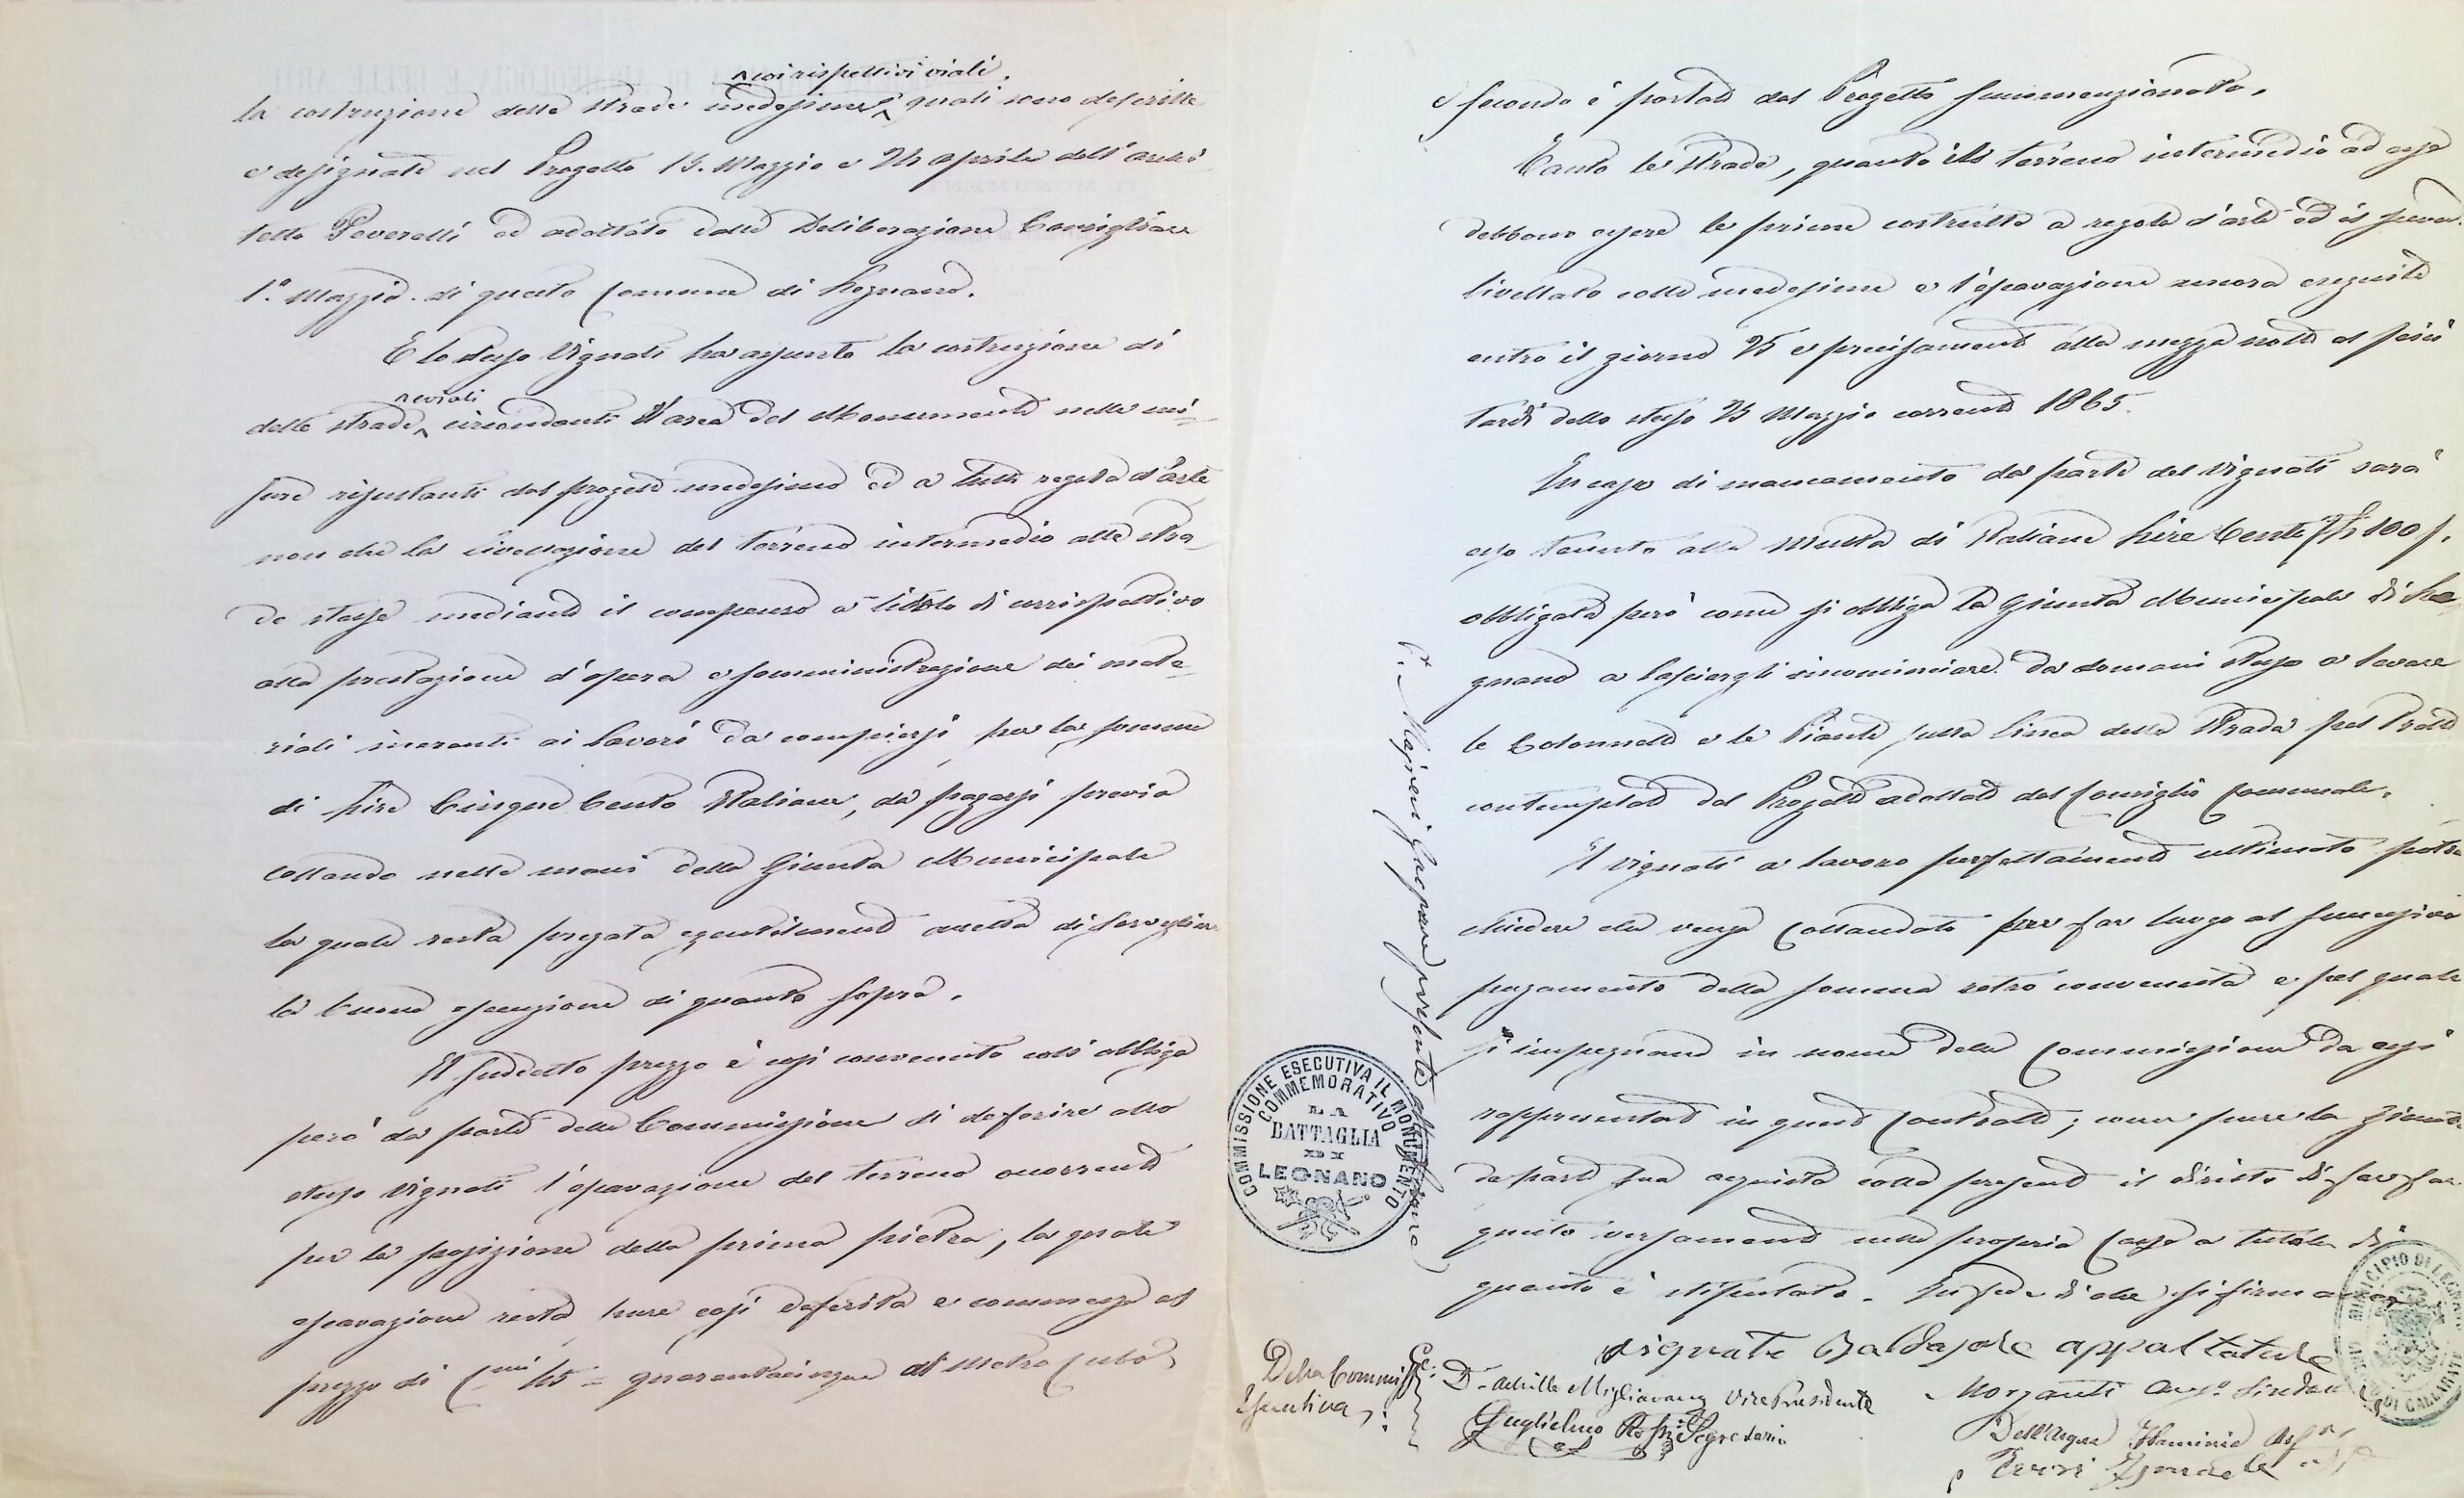 coi rispettivi viali.
la costruzione delle strade medesime quali sono descritte
e designate nel Progetto 15. Maggio e 24 aprile dell'archi
tetto Peverelli ed adottato dalla Deliberazione Consigliare
1.º Maggio di questo Comune di Legnano.
E lo stesso Vignati ha assunto la costruzione di
e viali
delle strade circondanti l'area del Monumento nelle mi=
sure risultanti dal progetto medesimo ed a tutta regola d'arte
non che la livellazione del terreno intermedio alle stra=
de stesse mediante il compenso a titolo di corrispettivo
alla prestazione d'opera e somministrazione dei mate=
riali inerenti ai lavori da compiersi, per la somma
di Lire Cinque Cento Italiane, da pagarsi previa
Collaudo nelle mani della Giunta Municipale
la quale resta pregata gentilmente anche di sorvegliare
la buona esecuzione di quanto sopra.
Il suddetto prezzo è così convenuto coll'obbligo
però da parte della Commissione di deferire allo
stesso Vignati l'escavazione del terreno occorrente
per la posizione della prima pietra, la quale
escavazione resta pure così deferita e commessa al
prezzo di C.mi 45 = quarantacinque al Metro Cubo,
e secondo è portato dal Progetto summenzionato.
Tanto le strade, quanto il terreno intermedio ad esse
debbono essere le prime costrutte a regola d'arte ed il secondo
livellato colle medesime e l'escavazione ancora eseguita
entro il giorno 25 e precisamente alla mezza notte al più
tardi dello stesso 25 Maggio corrente 1865.
In caso di mancamento da parte del Vignati sarà
esso tenuto alla Multa di Italiane Lire Cento 100
obbligata però come si obbliga la Giunta Municipale di Le=
gnano a lasciargli incominciare da domani stesso a levare
le Colonnette e le Piante sulla linea della Strada pel Prato
contemplate dal Progetto adottato dal Consiglio Comunale.
Il Vignati a lavoro perfettamente ultimato potrà
chiedere che venga Collaudato per far luogo al successivo
pagamento della somma sotto convenuta e pel quale
si impegnano in nome della Commissione da essi
rappresentata in questo Contratto; come pure la Giunta
da parte sua acquista colla presente il diritto di far
questo versamento nella propria Cassa a tutela di
quanto è stipulato. In fede di che si firmano
Vignate Baldasare appaltatore
Morganti Sindaco
Dell'Acqua Flaminio
Della Commiss.e
Esecutiva
D.r Achille Migliavacca Vice Presidente
Guglielmo Segretario
presente
COMMISSIONE ESECUTIVA IL MONUMENTO
COMMEMORATIVO
LA
BATTAGLIA
DI
LEGNANO
MUNICIPIO DI LEGNANO
DI GALLARATE